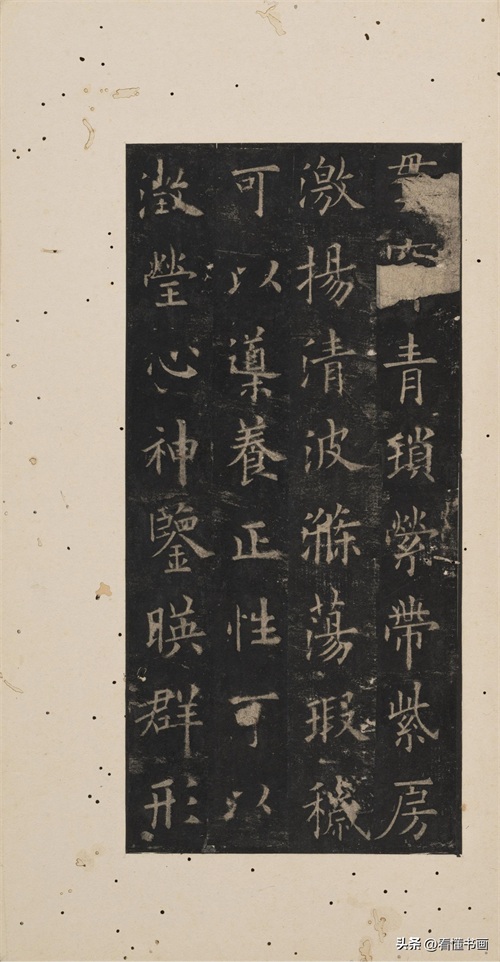 青瑣縈帶紫房
激揚清波滌蕩瑕穢
可以導養正性可以
澂瑩心神鑒暎群形
头条 @看懂书画